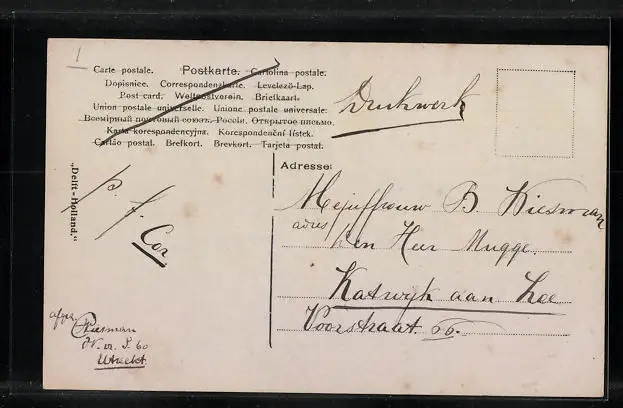 1
Carte postale. Postkarte. Cartolina postale.
Dopisnice. Correspondenzkarte. Levelező-Lap.
Post card. Weltpostverein. Briefkaart.
Union postale universelle. Unione postale universale.
Всемірный почтовый союзъ. Россія. Открытое письмо.
Karta korespondencyjna. Korespondenční lístek.
Cartão postal. Brefkort. Brevkort. Tarjeta postal.
Drukwerk
Adresse:
Mejuffrouw B. Kiesman
adres
den Heer Mugge.
Katwijk aan Zee
Voorstraat 66.
"Delft-Holland."
p. f.
Cor
afz.
Utrecht.